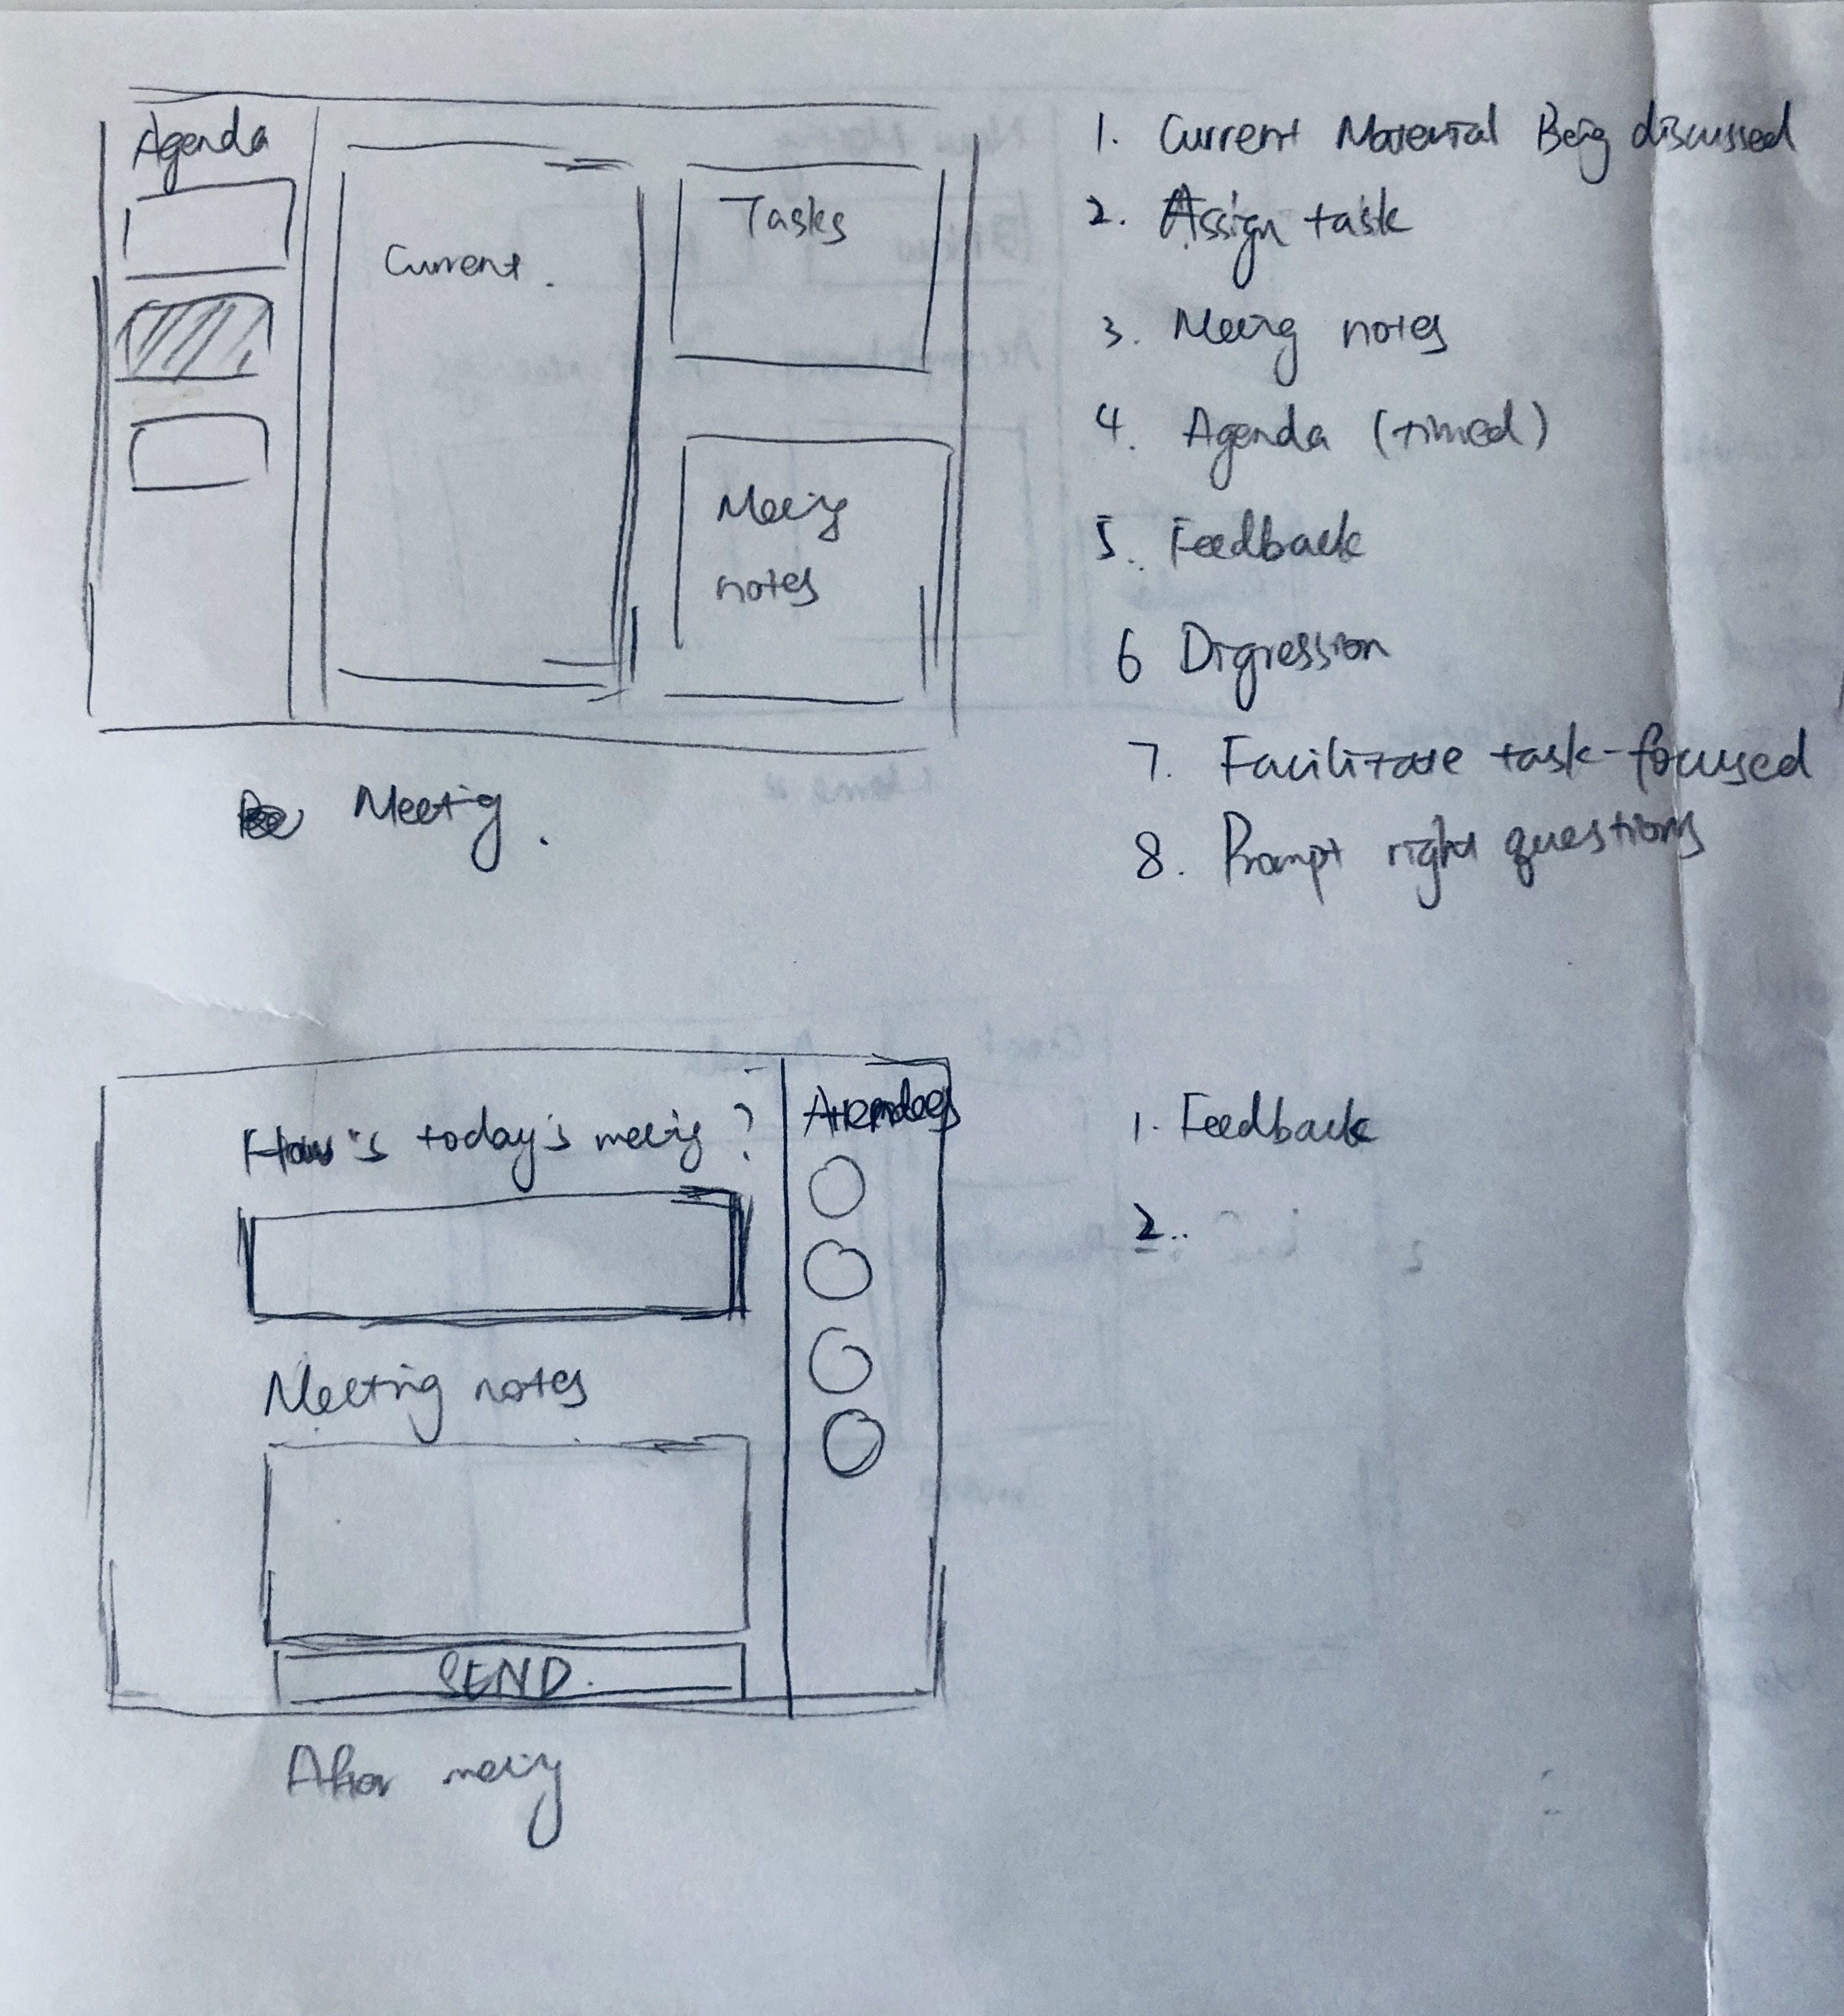 Agenda
Current.
Tasks
Meeing
notes
Meeting.
1. Current Material Being discussed
2. Assign task
3. Meeing notes
4. Agenda (timed)
5. Feedback
6 Digression
7. Facilitate task-focused
8. Prompt right questions
How's today's meeing?
Attendees
Meeting notes
SEND.
After meeing
1. Feedback
2..